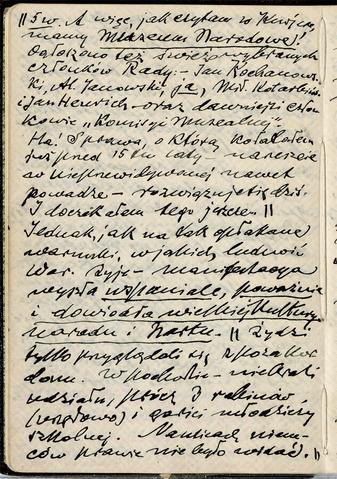 || 5 w. A więc, jak czytam w Kurjerze,
mamy Muzeum Narodowe!
Ogłoszono też świeżo wybranych
członków Rady: - Jan Kochanows-
ki, Al. Janowski, ja, Mił. Kotarbiński
i Jan Heurich - oraz dawniejsi człon-
kowie „Komisyi Muzealnej".
Ha! Sprawa, o którą kołatałem
już przed 15tu laty - nareszcie
w nieprzewidywanej nawet
powadze - rozwiązuje się dziś.
I doczekałem tego jeszcze. ||
Jednak, jak na tak opłakane
warunki, w jakich ludność
War. żyje - manifestacya
wyszła wspaniale, poważnie
i dowiodła wielkiej kultury
narodu i hartu. || Żydzi
tylko przyglądali się z poza okien
domu. W pochodzie - nie brali
udziału, prócz 3 rabinów,
(urzędowo) i garści młodzieży
szkolnej. Na ulicach niem-
ców prawie nie było widać. ||